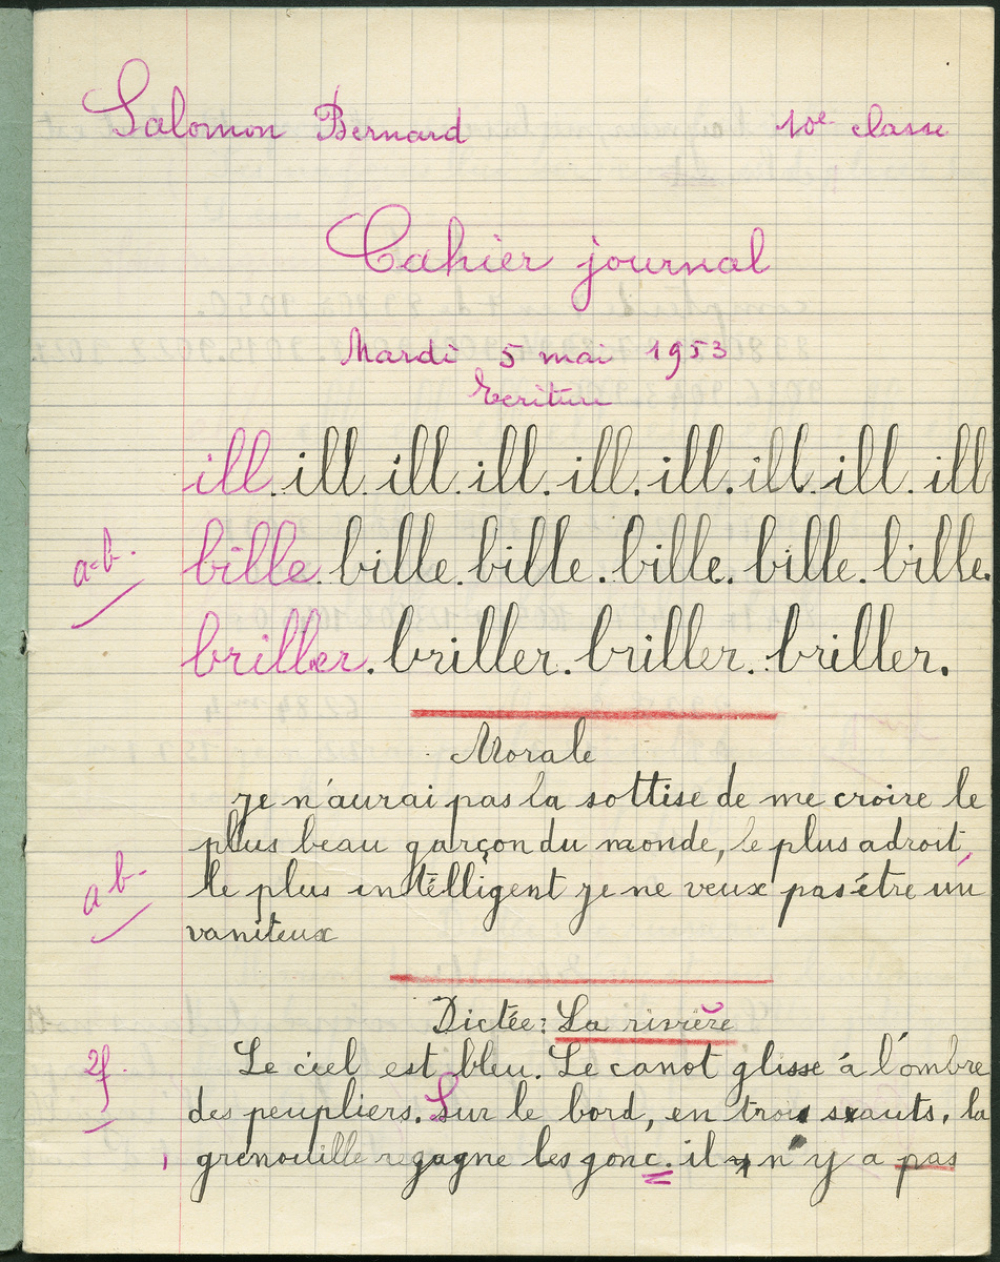 Salomon Bernard 10e classe
Cahier journal
Mardi 5 mai 1953
Ecriture
ill. ill. ill. ill. ill. ill. ill. ill. ill
a-b. bille. bille. bille. bille. bille. bille.
briller. briller. briller. briller.
Morale
je n'aurai pas la sottise de me croire le
plus beau garçon du monde, le plus adroit,
ab- le plus intélligent je ne veux pas être un
vaniteux
Dictée: La rivière
2f. Le ciel est bleu. Le canot glisse á l'ombre
des peupliers. Sur le bord, en trois sauts, la
grenouille regagne les gonc. il n'y a pas